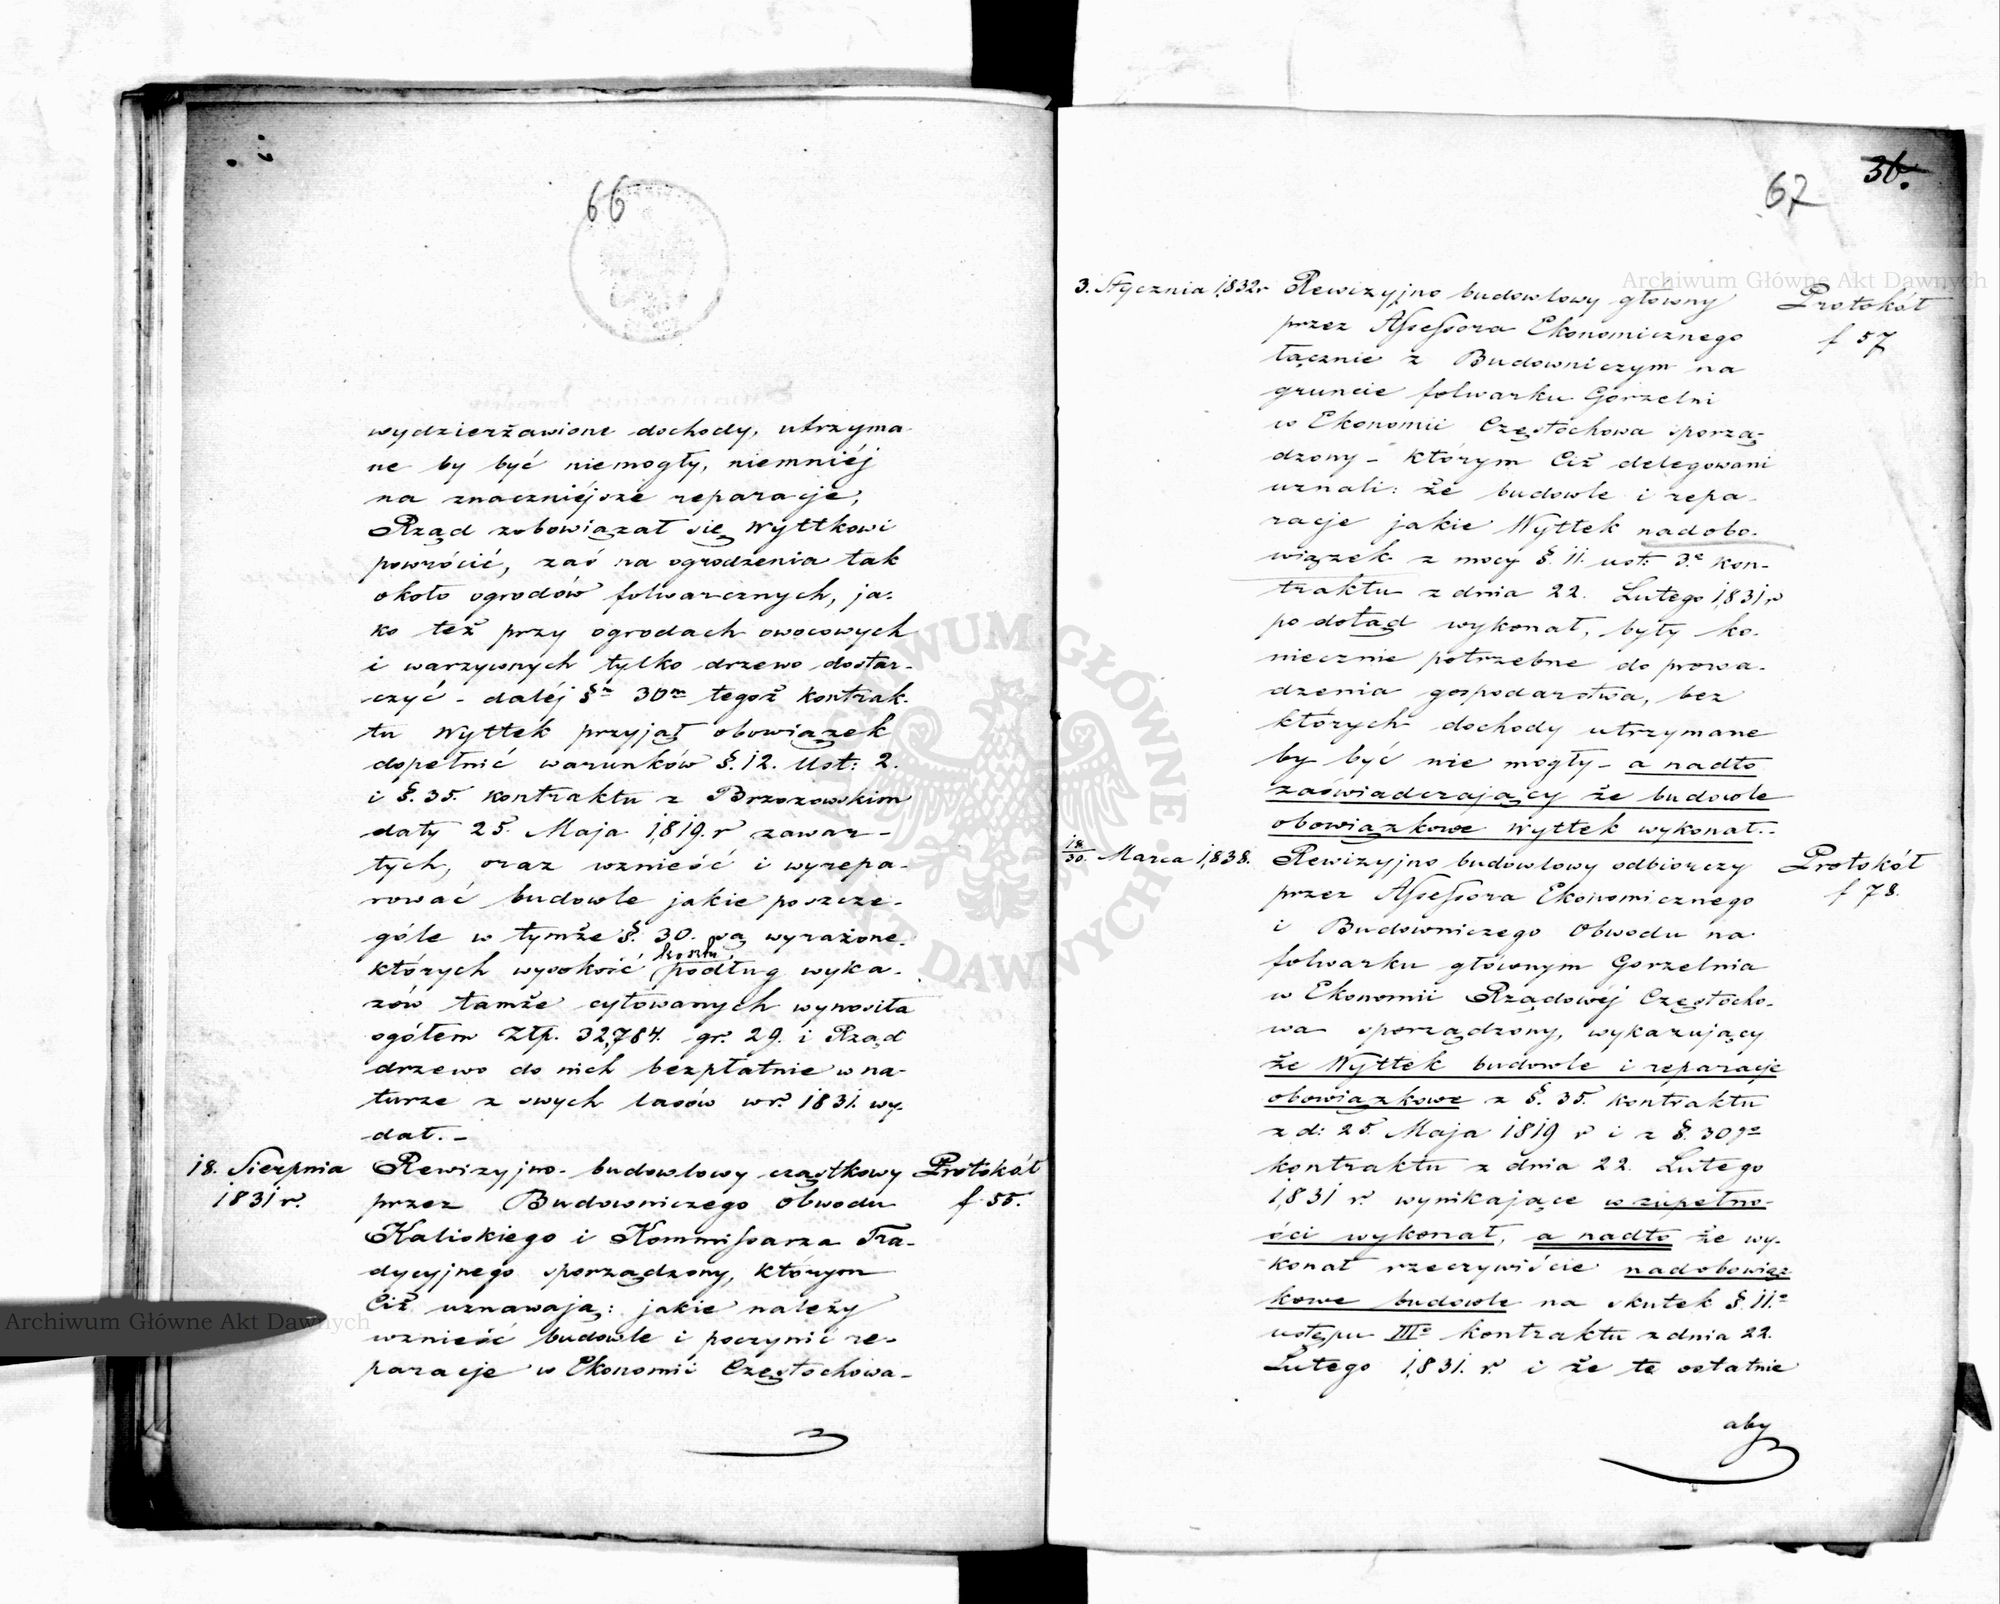 66
wydzierżawione dochody, utrzyma-
ne by być niemogły, niemniéj
na znaczniéjsze reparacje,
Rząd zobowiązał się Wyttkowi
powrócić, zaś na ogrodzenia tak
około ogrodów folwarcznych, ja-
ko też przy ogrodach owocowych
i warzywnych tylko drzewo dostar-
czyć - daléj §m 30m tegoż kontrak-
tu Wyttek przyjął obowiązek
dopełnić warunków §. 12. Ust: 2.
i §. 35. kontraktu z Brzozowskim
daty 25. Maja 1,819. r zawar-
tych, oraz wznieść i wyrepa-
rować budowle jakie poszcze-
góle w tymże §. 30. są wyrażone.
których wysokość kosztu, podług wyka-
zów tamże cytowanych wynosiła
ogółem Złp. 32,784. gr. 29. i Rząd
drzewo do nich bezpłatnie w na-
turze z swych lasów w r. 1831. wy-
dał. -
18. Sierpnia
1831 r.
Rewizyjno-budowlowy cząstkowy
przez Budowniczego Obwodu
Kaliskiego i Kommissarza Tra-
dycyjnego sporządzony, którym
Ciż uznawają: jakie należy
wznieść budowle i poczynić re-
paracje w Ekonomii Częstochowa-
Protokół
f. 55.
67
36.
3. Stycznia 1,832 r
Rewizyjno budowlowy główny
przez Assessora Ekonomicznego
łącznie z Budowniczym na
gruncie folwarku Gorzelni
w Ekonomii Częstochowa sporzą-
dzony - którym Ciż delegowani
uznali: że budowle i repa-
racje jakie Wyttek nadobo-
wiązek z mocy §. 11. ust: 3.o kon-
traktu z dnia 22. Lutego 1,831 r
podołąd wykonał, były ko-
niecznie potrzebne do prowa-
dzenia gospodarstwa, bez
których dochody utrzymane
by być nie mogły - a nadto
zaświadczający że budowle
obowiązkowe Wyttek wykonał. -
Protokół
f 57
18/30. Marca 1,838.
Rewizyjno budowlowy odbiorczy
przez Assessora Ekonomicznego
i Budowniczego Obwodu na
folwarku głównym Gorzelnia
w Ekonomii Rządowéj Częstocho-
wa sporządzony, wykazujący
że Wyttek budowle i reparacje
obowiązkowe z §. 35. kontraktu
z d: 25. Maja 1819 r i z §. 30go
kontraktu z dnia 22. Lutego
1,831 r. wynikające w zupełno-
ści wykonał, a nadto że wy-
konał rzeczywiście nadobowiąz
kowe budowle na skutek §. 11.o
ustępu IIIo kontraktu z dnia 22.
Lutego 1,831. r. i że te ostatnie
aby
Protokół
f 78.
Archiwum Główne Akt Dawnych
Archiwum Główne Akt Dawnych
ARCHIWUM GŁÓWNE AKT DAWNYCH